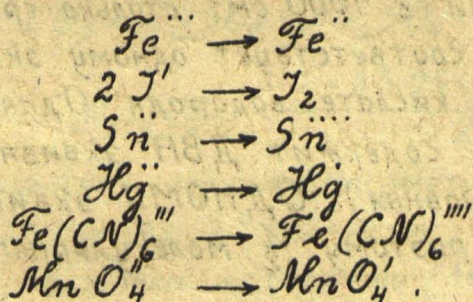 Fe˙˙˙ → Fe˙˙
2 J′ → J₂
Sn˙˙ → Sn˙˙˙˙
Hg˙˙ → Hg˙
Fe(CN)₆‴ → Fe(CN)₆⁗
MnO₄″ → MnO₄′.